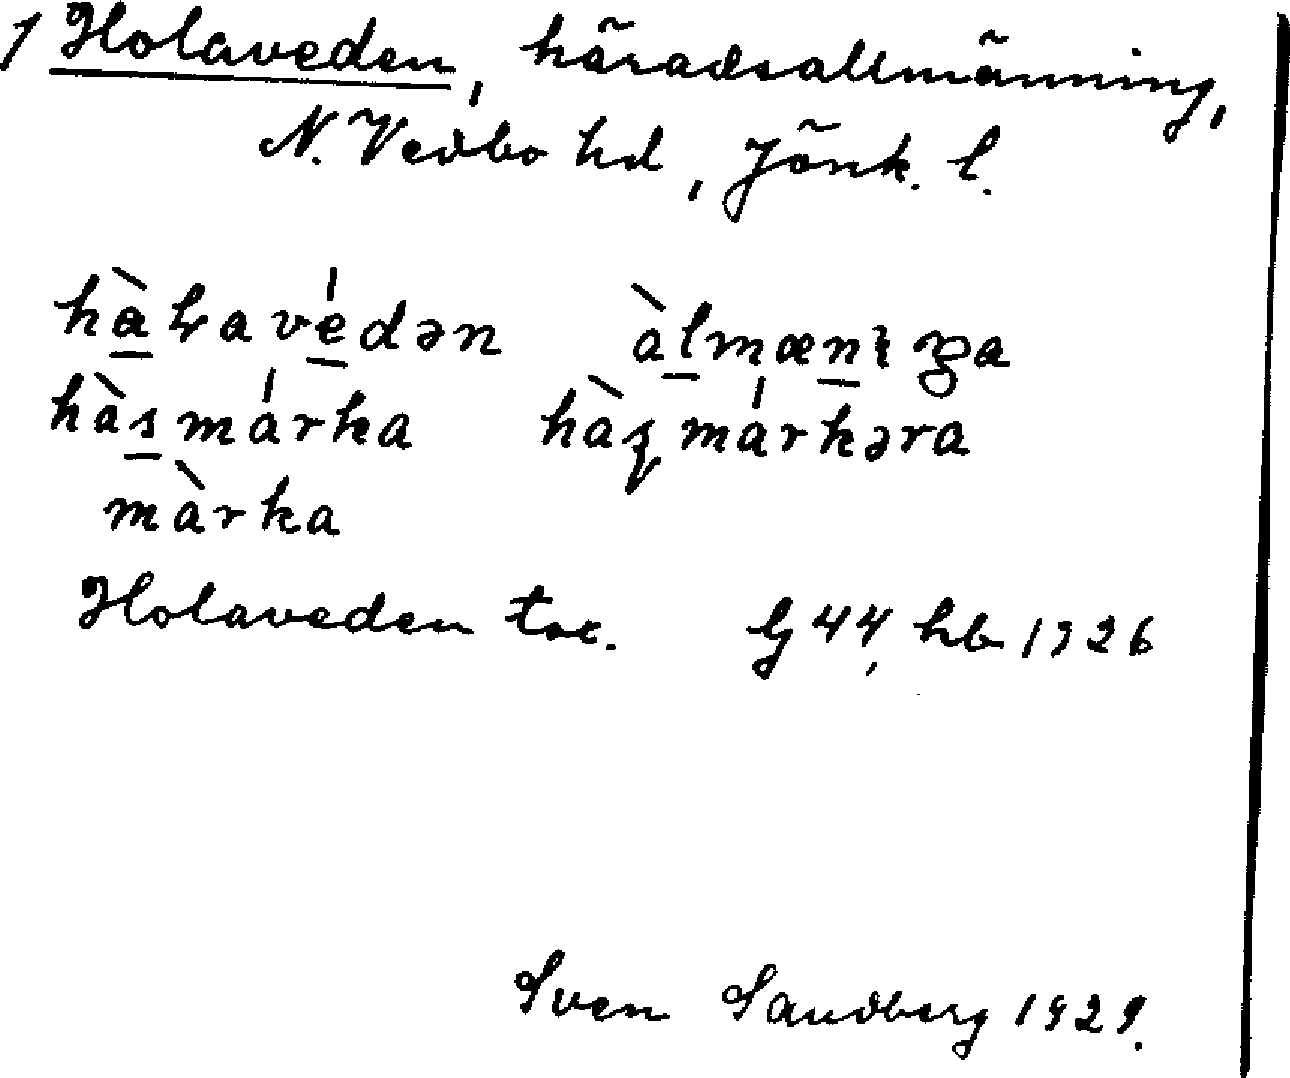 1 Holaveden, häradsallmänning,
N. Vedbo hd, Jönk. l.
hàꞎavédən àlmænıŋa
hàsmárka hàʂmárkəra
màrka
Holaveden toc. G 44, hb 1926
Sven Sandberg 1929.